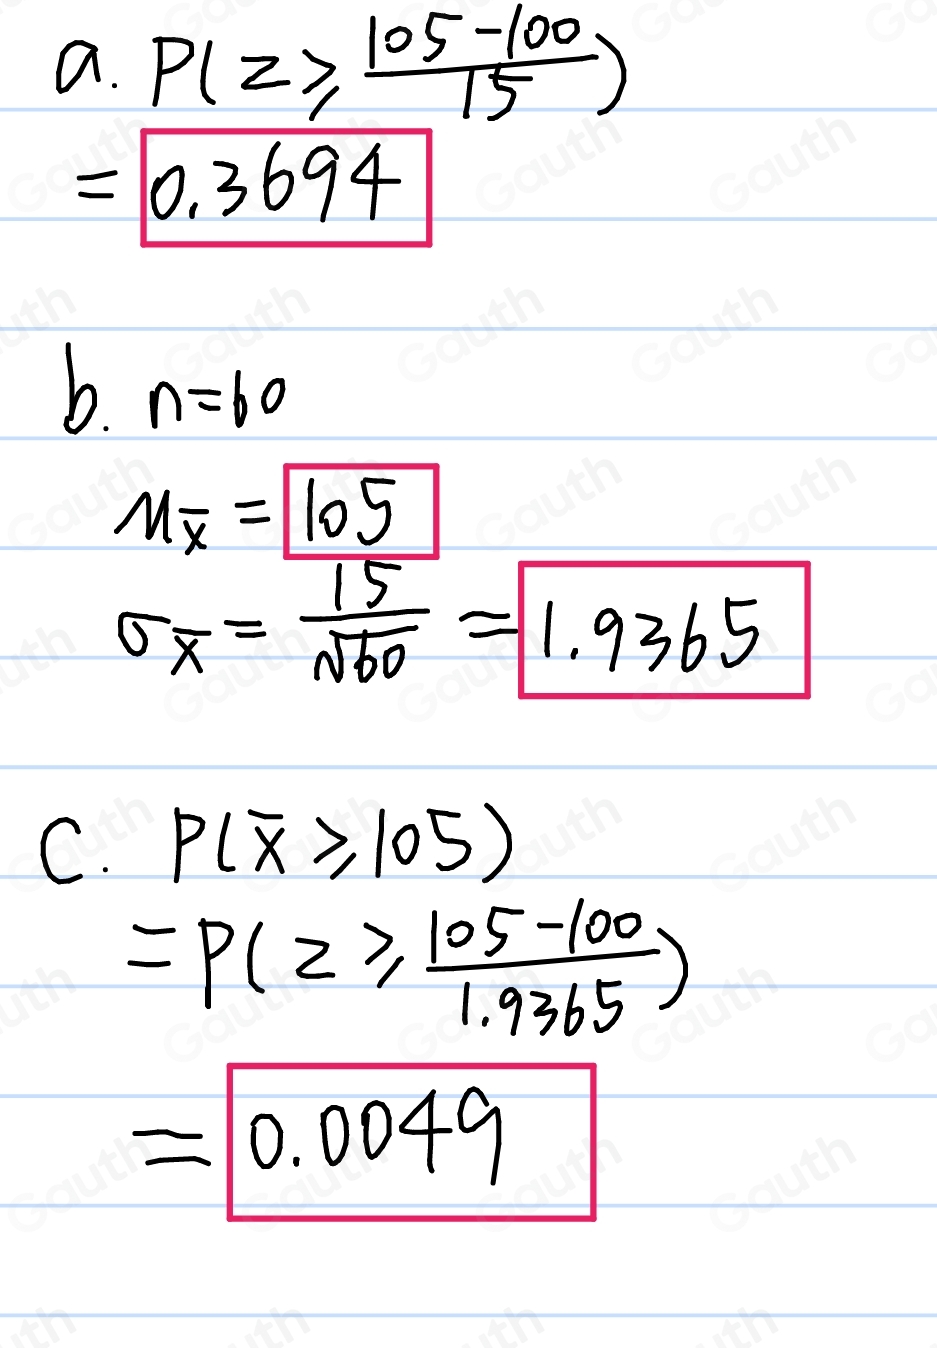 a. P(z ≥ (105-100)/15)
= 0.3694
b. n=60
μx̄ = 105
σx̄ = 15/√60 = 1.9365
c. P(x̄ ≥ 105)
= P(z ≥ (105-100)/1.9365)
= 0.0049